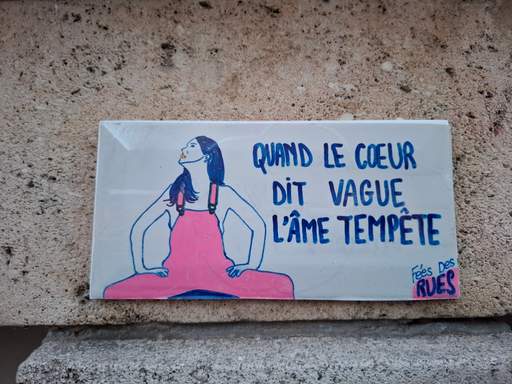 QUAND LE CŒUR
DIT VAGUE
L'ÂME TEMPÊTE
Fées Des
RUES